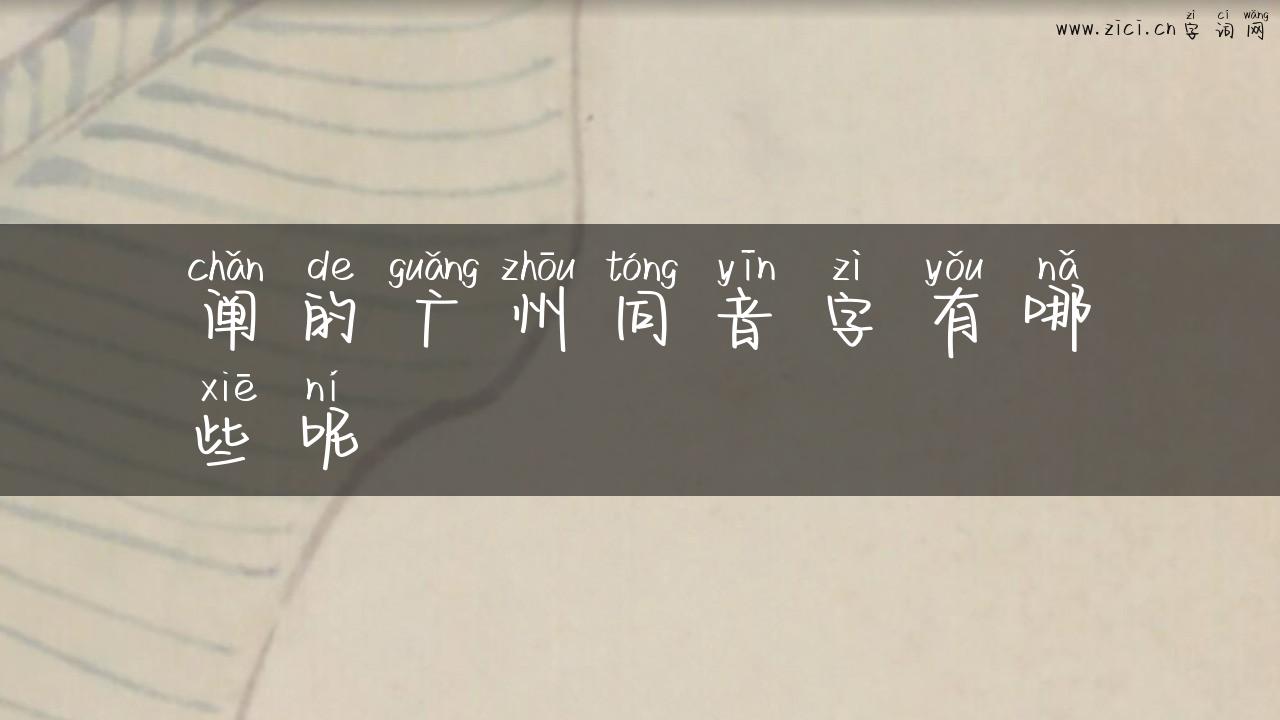 zì cí wǎng
www.zici.cn 字词网
chǎn de guǎng zhōu tóng yīn zì yǒu nǎ
阐的广州同音字有哪
xiē ní
些呢